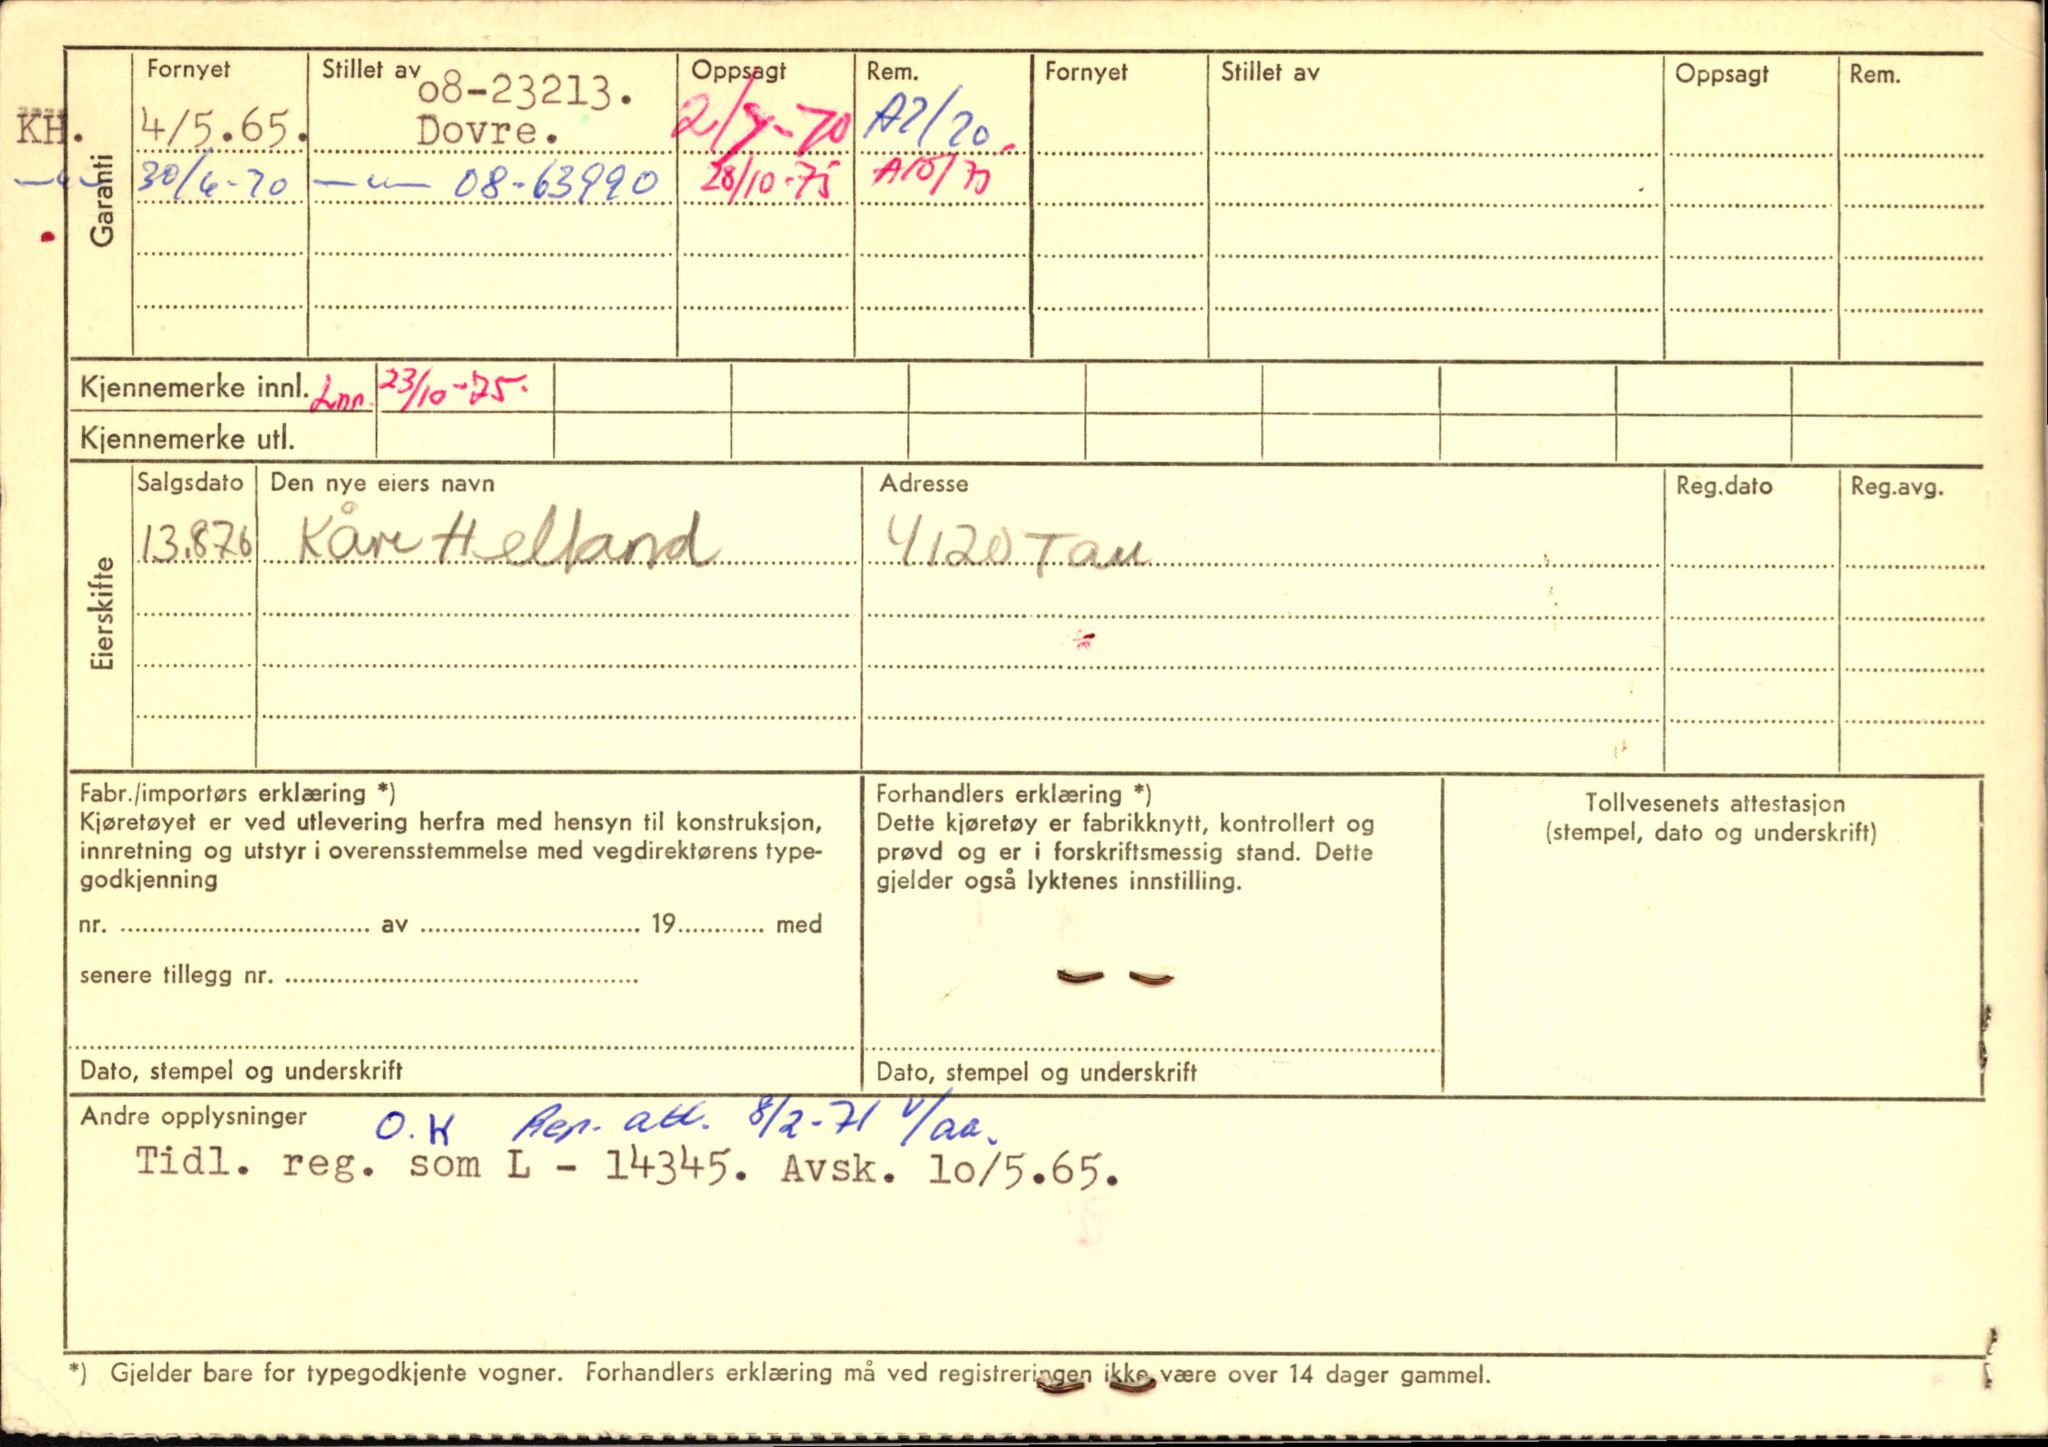 Fornyet Stillet av Oppsagt Rem. Fornyet Stillet av Oppsagt Rem.
o8-23213.
KH. 4/5.65. Dovre. 2/7-70 A7/70
Garanti
30/6-70 —"— 08-63990 28/10-75 A10/75
Kjennemerke innl. Inn. 23/10-75.
Kjennemerke utl.
Eierskifte
Salgsdato Den nye eiers navn Adresse Reg.dato Reg.avg.
13.876 Kåre Helland 4120 Tau
Fabr./importørs erklæring *)
Kjøretøyet er ved utlevering herfra med hensyn til konstruksjon,
innretning og utstyr i overensstemmelse med vegdirektørens type-
godkjenning
nr. av 19 med
senere tillegg nr.
Dato, stempel og underskrift
Forhandlers erklæring *)
Dette kjøretøy er fabrikknytt, kontrollert og
prøvd og er i forskriftsmessig stand. Dette
gjelder også lyktenes innstilling.
Dato, stempel og underskrift
Tollvesenets attestasjon
(stempel, dato og underskrift)
Andre opplysninger O.K Rep. att. 8/2-71 v/aa.
Tidl. reg. som L - 14345. Avsk. lo/5.65.
*) Gjelder bare for typegodkjente vogner. Forhandlers erklæring må ved registreringen ikke være over 14 dager gammel.